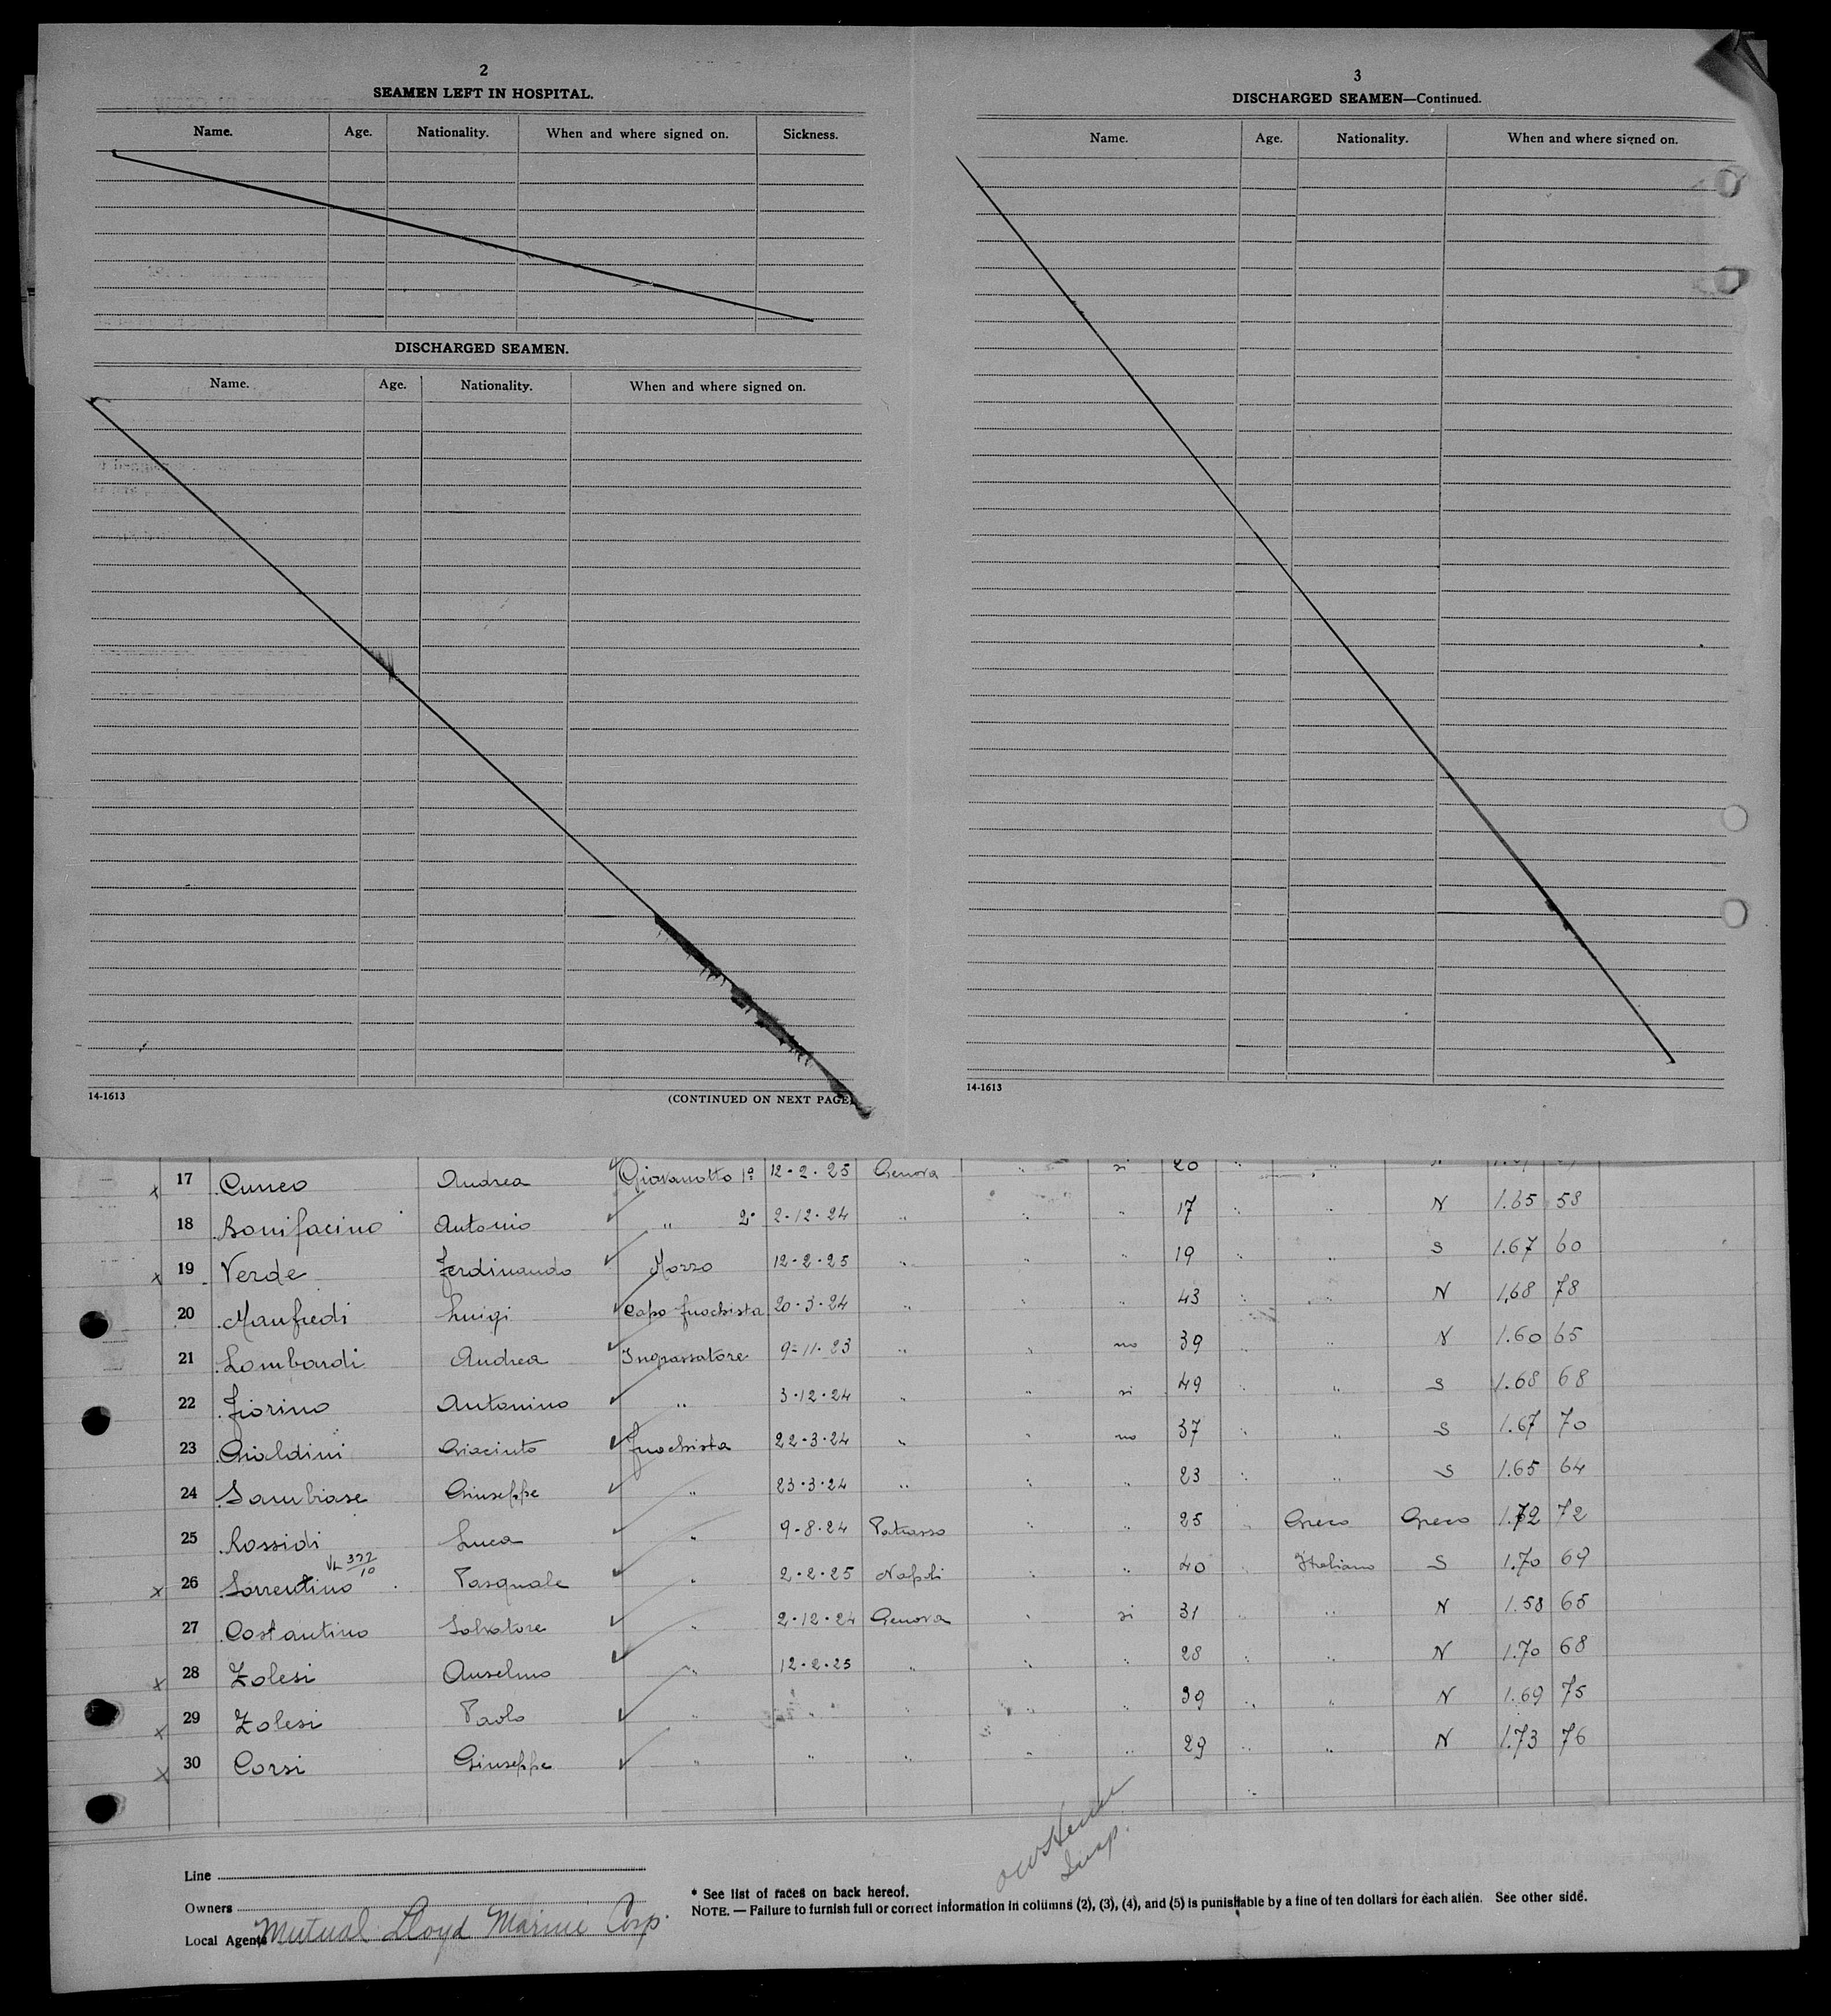 2
SEAMEN LEFT IN HOSPITAL.
Name. Age. Nationality. When and where signed on. Sickness.
DISCHARGED SEAMEN.
Name. Age. Nationality. When and where signed on.
14-1613 (CONTINUED ON NEXT PAGE)
3
DISCHARGED SEAMEN—Continued.
Name. Age. Nationality. When and where signed on.
14-1613
x 17 Cuneo Andrea Giovanotto 1º 12-2-25 Genova " si 20 " "
18 Bonifacino Antonio " 2º 2-12-24 " " " 17 " " N 1.65 58
x 19 Verde Ferdinando Mozzo 12-2-25 " " " 19 " " S 1.67 60
20 Manfredi Luigi Capo fuochista 20-3-24 " " " 43 " " N 1.68 78
21 Lombardi Andrea Ingrassatore 9-11-23 " " no 39 " " N 1.60 65
22 Fiorino Antonino " 3-12-24 " " si 49 " " S 1.68 68
23 Gialdini Giacinto Fuochista 22-3-24 " " no 37 " " S 1.67 70
24 Sambiase Giuseppe " 23-3-24 " " " 23 " " S 1.65 64
25 Rossidi Luca " 9-8-24 Patrasso " " 25 " Greco Greco 1.72 72
x 26 Sorrentino Pasquale " 2-2-25 Napoli " " 40 " Italiano S 1.70 69
27 Costantino Salvatore " 2-12-24 Genova " si 31 " " N 1.58 65
x 28 Zolesi Anselmo " 12-2-25 " " " 28 " " N 1.70 68
x 29 Zolesi Paolo " " " " " 39 " " N 1.69 75
x 30 Corsi Giuseppe " " " " " 29 " " N 1.73 76
Insp.
Line
Owners
Local Agents Mutual Lloyd Marine Corp.
* See list of races on back hereof.
NOTE. — Failure to furnish full or correct information in columns (2), (3), (4), and (5) is punishable by a fine of ten dollars for each alien. See other side.